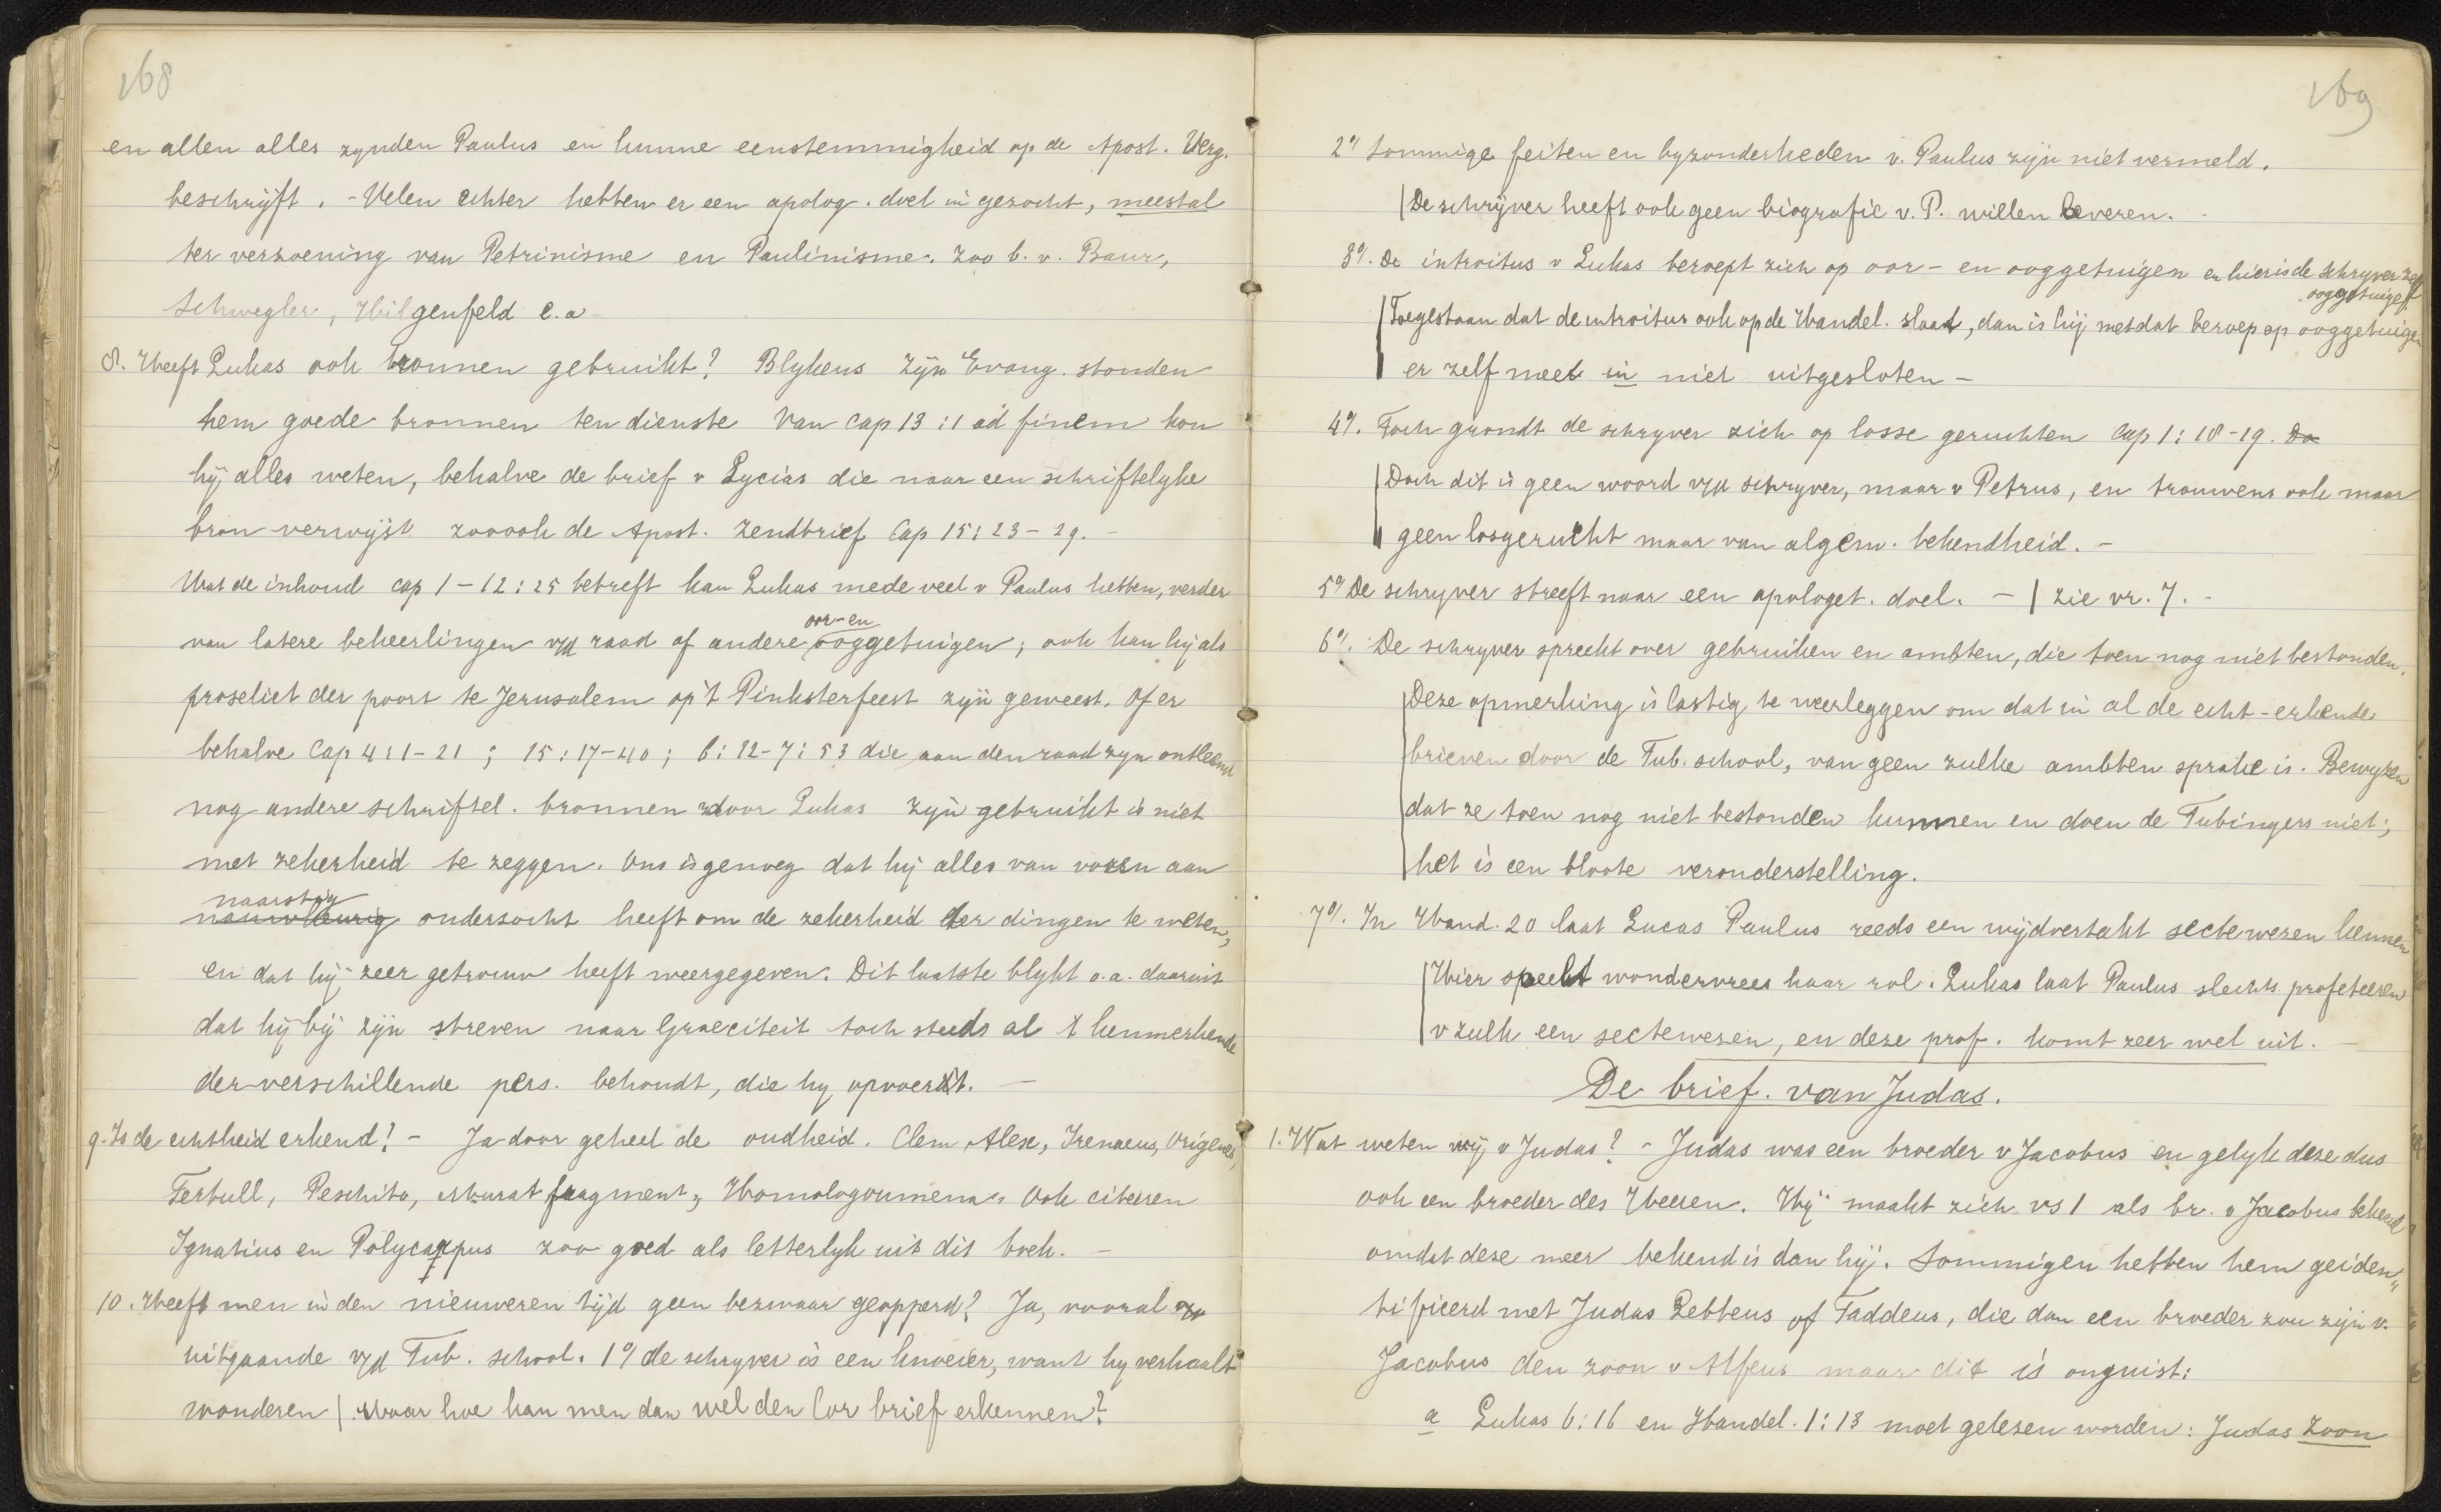 168
en allen alles zynden Paulus en hunne eenstemmigheid op de Apost. Verg.
beschrijft. - Velen echter hebben er een apolog. doel in gezocht, meestal
ter verzoening van Petrinisme en Paulinisme. Zoo b. v. Baur,
Schwegler, Hilgenfeld e. a
8. Heeft Lukas ook bronnen gebruikt? Blykens zijn Evang. stonden
hem goede bronnen ten dienste Van Cap 13:1 ad finem kon
hij alles weten, behalve de brief v Lycias die naar een schriftelyke
bron verwijst zooook de Apost. Zendbrief Cap 15:23-29. -
Wat de inhoud cap 1-12:25 betreft kan Lukas mede veel v Paulus hebben, verder
oor- en
van latere bekeerlingen v/d raad of andere ooggetuigen; ook kan hij als
proseliet der poort te Jerusalem op 't Pinksterfeest zijn geweest. Of er
behalve Cap 4:1-21; 15:17-40; 6:12-7:53 die aan den raad zyn ontleend
nog andere schriftel. bronnen door Lukas zijn gebruikt is niet
met zekerheid te zeggen. Ons is genoeg dat hij alles van voren aan
naarstig
nauwkeurig onderzocht heeft om de zekerheid der dingen te weten,
en dat hij zeer getrouw heeft weergegeven. Dit laatste blykt o.a. daaruit
dat hij bij zijn streven naar Graeciteit toch steeds al 't kenmerkende
der verschillende pers. behoudt, die hy opvoert. -
9. Is de echtheid erkend? - Ja door geheel de oudheid. Clem Alex, Irenaeus, Origenes,
Tertull, Peschito, Murat fragment, Homologoumena. Ook citeeren
Ignatius en Polycarpus zoo goed als letterlyk uit dit boek. -
10. Heeft men in den nieuweren tijd geen bezwaar geopperd? Ja, vooral
uitgaande v/d Tub. school. 1o/ de schryver is een knoeier, want hy verhaalt
wonderen | Maar hoe kan men dan wel den Cor brief erkennen?
169
2o/ Sommige feiten en byzonderheden v. Paulus zijn niet vermeld.
| De schrijver heeft ook geen biografie v. P. willen leveren.
3o/. De introitus v Lukas beroept zich op oor- en ooggetuigen en hier is de schryver zelf
ooggetuige
| Toegestaan dat de introitus ook op de Handel. slaat, dan is hij met dat beroep op ooggetuigen
er zelf met in niet uitgesloten -
4o/. Toch grondt de schryver zich op losse geruchten Cap 1:18-19. Do
| Doch dit is geen woord v/d schryver, maar v Petrus, en trouwens ook maar
geen losgerucht maar van algem. bekendheid. -
5o/ De schryver streeft naar een apologet. doel. - | zie vr. 7. -
6o/. De schryver spreekt over gebruiken en ambten, die toen nog niet bestonden.
Deze opmerking is lastig te weerleggen om dat in al de echt-erkende
brieven door de Tub. school, van geen zulke ambten sprake is. Bewyzen
dat ze toen nog niet bestonden kunnen en doen de Tubingers niet;
het is een bloote veronderstelling.
7o/. In Hand. 20 laat Lucas Paulus reeds een wijdvertakt sectewezen kennen
Hier speelt wondervrees haar rol. Lukas laat Paulus slechts profeteeren
v zulk een sectewezen, en deze prof. komt zeer wel uit. -
De brief. van Judas.
1. Wat weten wij v Judas? - Judas was een broeder v Jacobus en gelyk deze dus
ook een broeder des Heeren. Hij maakt zich vs 1 als br. v Jacobus bekend
omdat deze meer bekend is dan hij. Sommigen hebben hem geiden"
tificeerd met Judas Lebbeus of Taddeus, die dan een broeder zou zijn v.
Jacobus den zoon v Alfeus maar dit is onjuist:
a Lukas 6:16 en Handel. 1:13 moet gelezen worden: Judas zoon